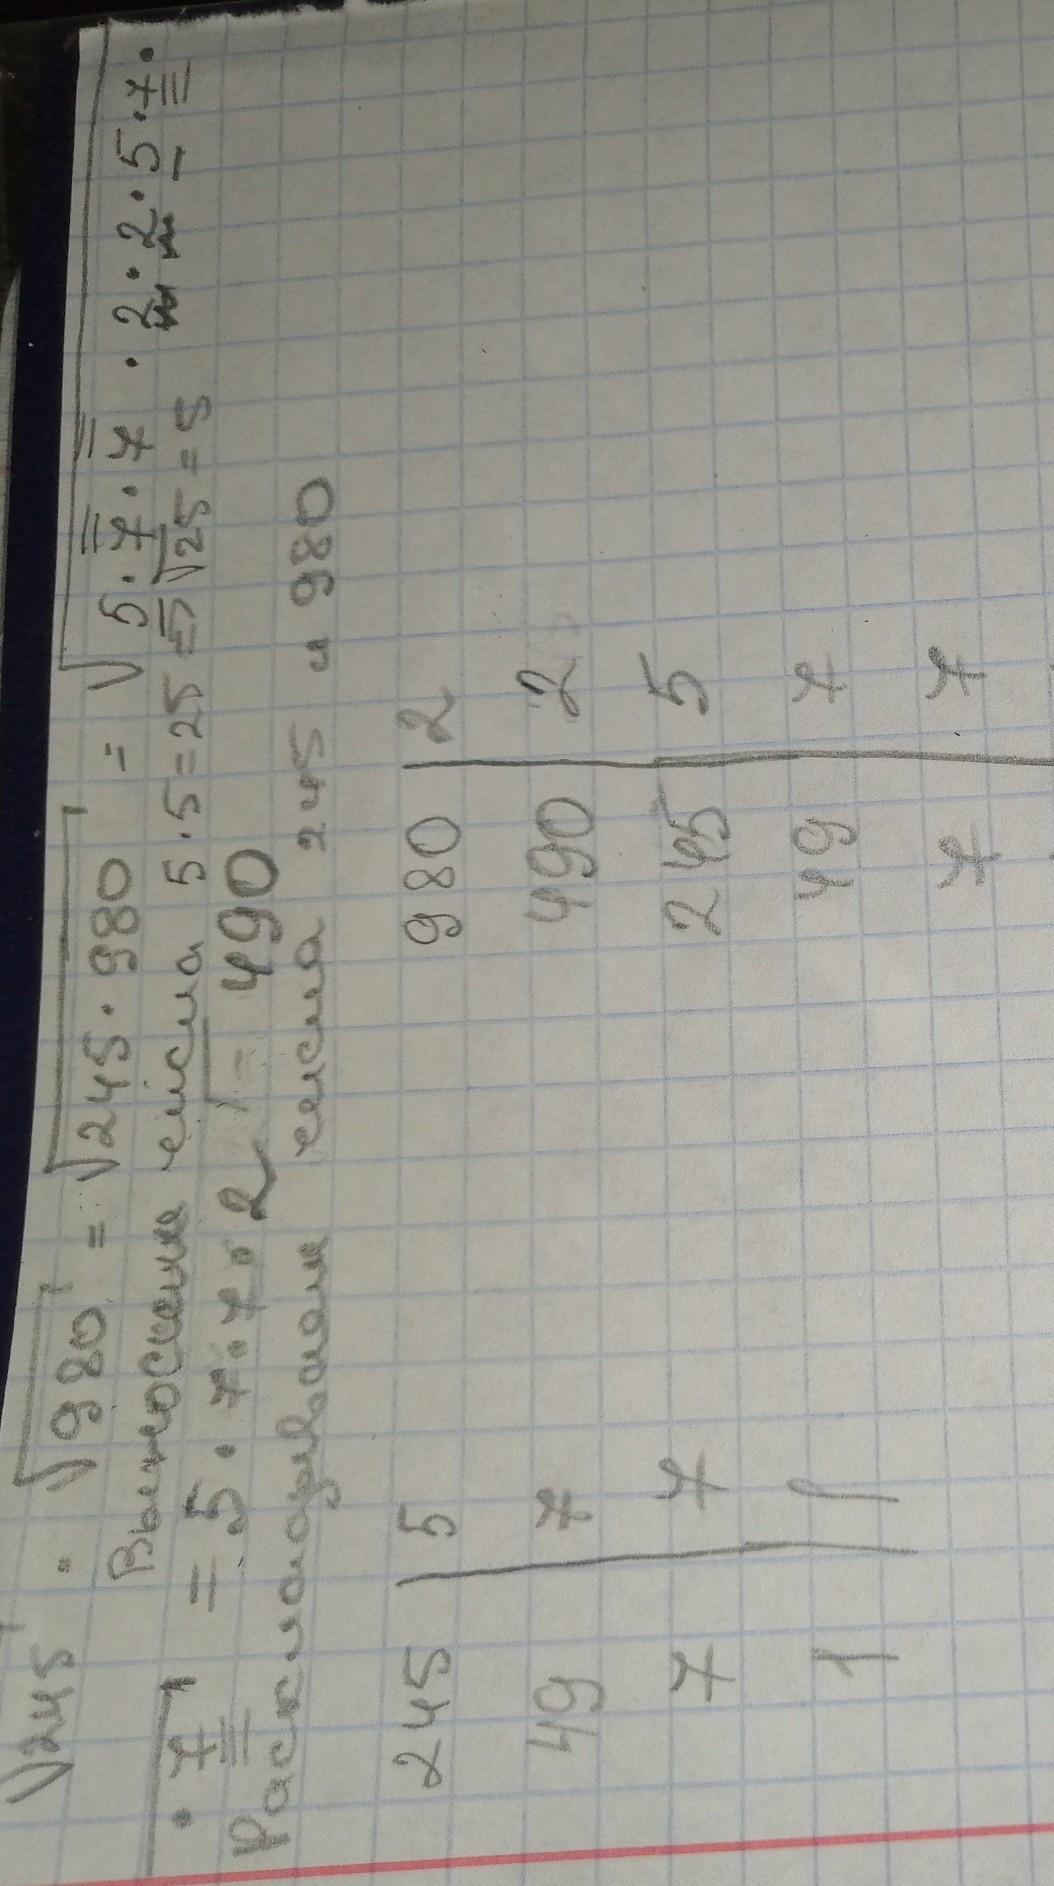 √245 · √980 = √245 · 980 = √5 · 7 · 7 · 2 · 2 · 5 · 7 ·
Выносим числа 5 · 5 = 25 = √25 = 5
· 7 = 5 · 7 · 7 · 2 = 490
Раскладываем числа 245 и 980
245 | 5 980 | 2
49 | 7 490 | 2
7 | 7 245 | 5
1 | 1 49 | 7
7 | 7